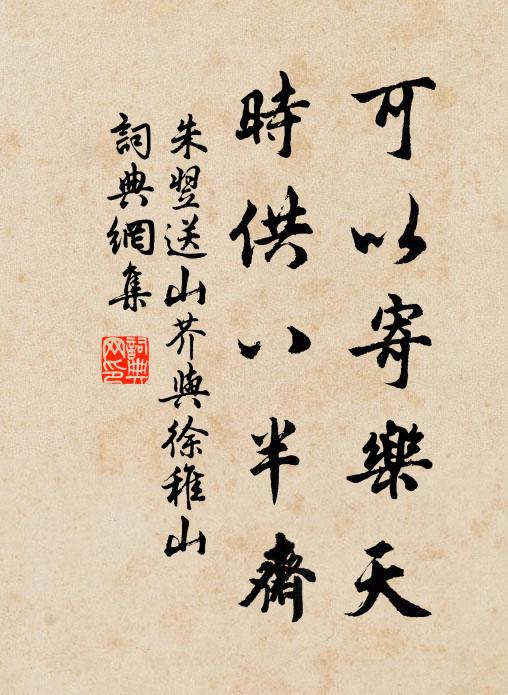 可以寄樂天
時供八半齋
朱翌送山芥與徐稚山
詞典網集
詞典網印